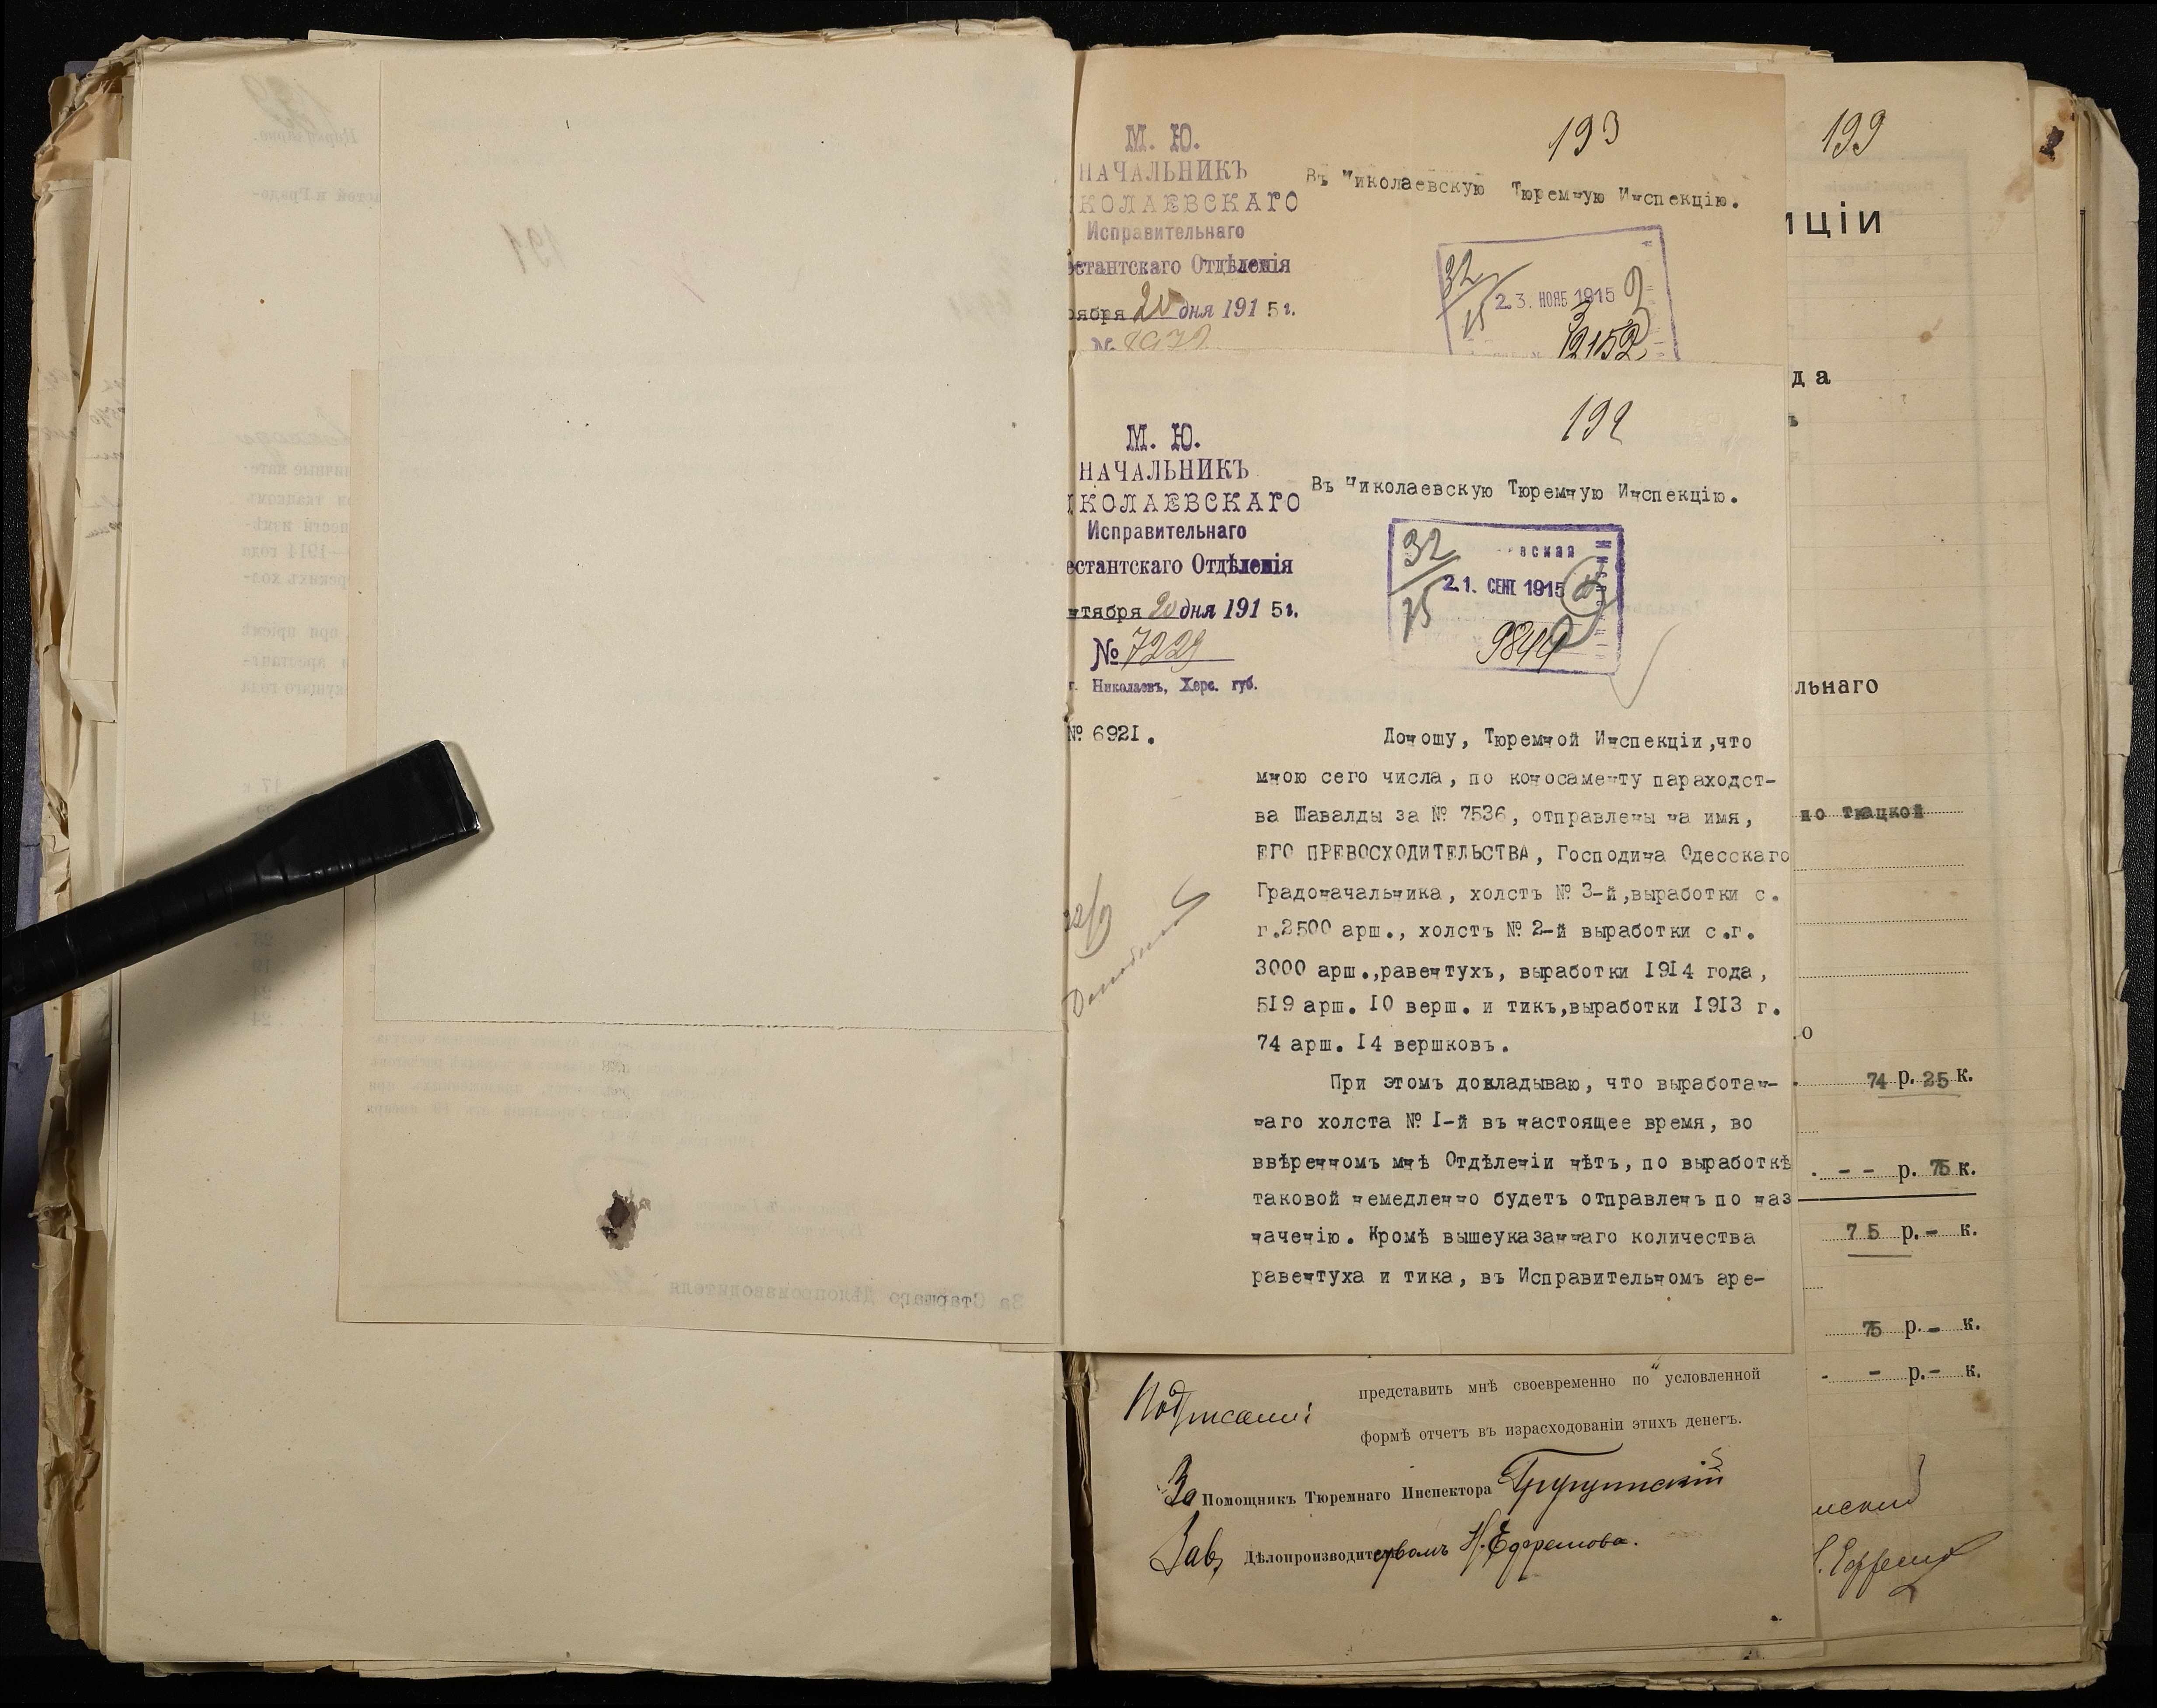 193
М. Ю.
НАЧАЛЬНИКЪ
КОЛАЕВСКАГО
Исправительнаго
естантскаго Отдѣленія
ября 20 дня 1915 г.
№
Въ Николаевскую Тюремную Инспекцію.
32/15
23. НОЯБ 1915
12152
192
М. Ю.
НАЧАЛЬНИКЪ
КОЛАЕВСКАГО
Исправительнаго
естантскаго Отдѣленія
нтября 20 дня 1915 г.
№ 7229
г. Николаевъ, Херс. губ.
№ 6921.
Въ Николаевскую Тюремную Инспекцію.
32/15
вская
21. СЕНТ 1915
9844
Доношу, Тюремной Инспекціи,что
мною сего числа, по коносаменту параходст-
ва Шавалды за № 7536, отправлены на имя,
ЕГО ПРЕВОСХОДИТЕЛЬСТВА, Господина Одесскаго
Градоначальника, холстъ № 3-й,выработки с.
г.2500 арш., холстъ № 2-й выработки с.г.
3000 арш.,равентухъ, выработки 1914 года,
519 арш. 10 верш. и тикъ,выработки 1913 г.
74 арш. 14 вершковъ.
При этомъ докладываю, что выработан-
наго холста № I-й въ настоящее время, во
ввѣренномъ мнѣ Отдѣленіи нѣтъ, по выработкѣ
таковой немедленно будетъ отправленъ по наз
наченію. Кромѣ вышеуказаннаго количества
равентуха и тика, въ Исправительномъ аре-
22/9
представить мнѣ своевременно по условленной
формѣ отчетъ въ израсходованіи этихъ денегъ.
Подписали:
За Помощникъ Тюремнаго Инспектора
Зав. Дѣлопроизводитствомъ Н. Ефремова.
199
ціи
да
ъ
льнаго
по ткацкой
о
74 р. 25 к.
- - р. 75 к.
75 р. - к.
75 р. - к.
- - р. - к.
нскій
За Старшаго Дѣлопроизводителя
191